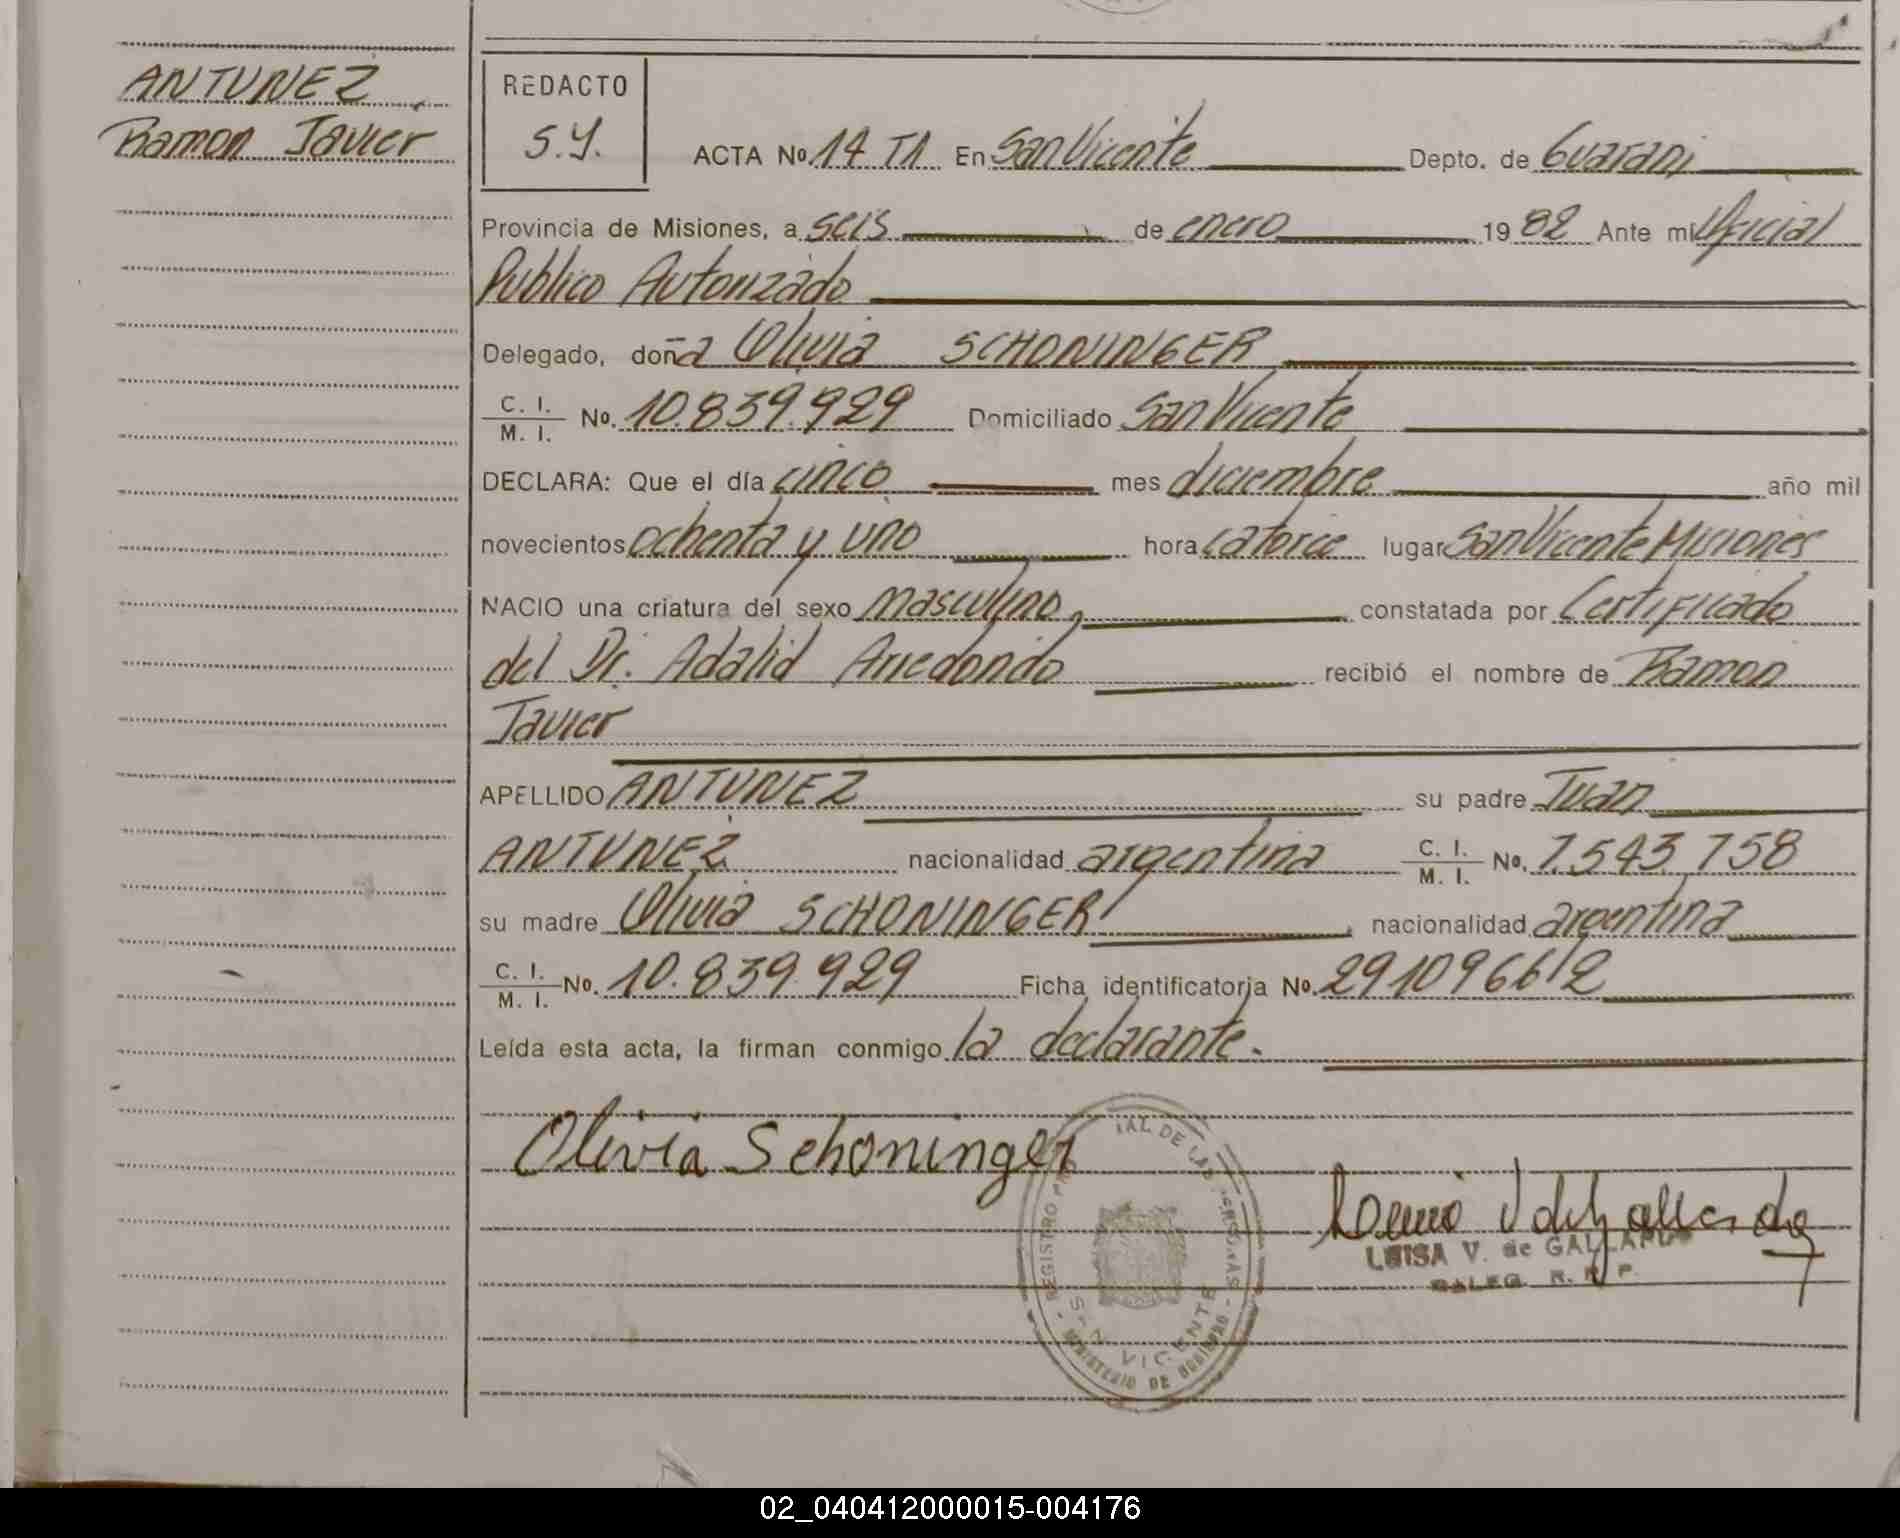 ANTUNEZ
Ramon Javier
REDACTO
S.Y.
ACTA No. 14 T1 En San Vicente Depto. de Guarani
Provincia de Misiones, a seis de enero 1982 Ante mi Oficial
Publico Autorizado
Delegado, doña Olivia SCHONINGER
C. I.
M. I. No. 10.839.929 Domiciliado San Vicente
DECLARA: Que el día cinco mes diciembre año mil
novecientos ochenta y uno hora catorce lugar San Vicente Misiones
NACIO una criatura del sexo masculino, constatada por Certificado
del Dr. Adalid Arredondo recibió el nombre de Ramon
Javier
APELLIDO ANTUNEZ su padre Juan
ANTUNEZ nacionalidad argentina C. I.
M. I. No. 7.543.758
su madre Olivia SCHONINGER nacionalidad argentina
C. I.
M. I. No. 10.839.929 Ficha identificatoria No. 29109662
Leída esta acta, la firman conmigo la declarante.
Olivia Schoninger
LUISA V. de GALLARDO
DELEG. R. P.
REGISTRO DE LAS PERSONAS
SAN VICENTE
MINISTERIO DE GOBIERNO
02_040412000015-004176